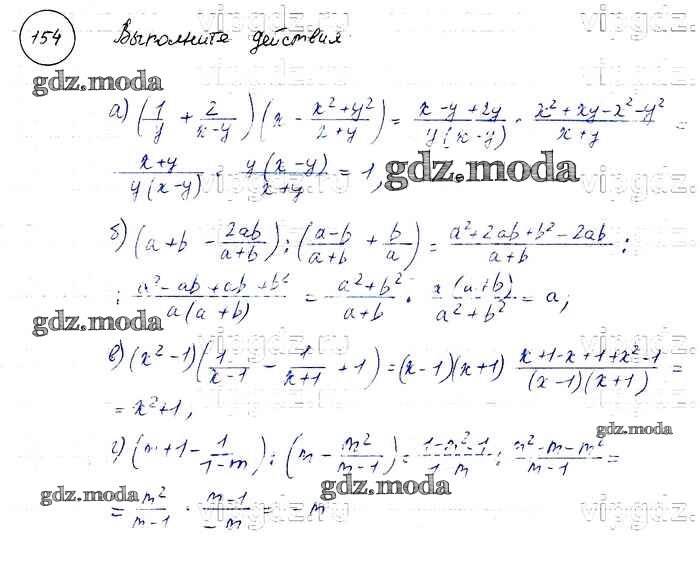 154 Выполните действия
gdz.moda
а) (1/y + 2/(x-y)) (x - (x²+y²)/(x+y)) = (x-y+2y)/(y(x-y)) · (x²+xy-x²-y²)/(x+y) =
(x+y)/(y(x-y)) · y(x-y)/(x+y) = 1, gdz.moda
б) (a+b - 2ab/(a+b)) : ((a-b)/(a+b) + b/a) = (a²+2ab+b²-2ab)/(a+b) :
: (a²-ab+ab+b²)/(a(a+b)) = (a²+b²)/(a+b) · a(a+b)/(a²+b²) = a;
gdz.moda
в) (x²-1) (1/(x-1) - 1/(x+1) + 1) = (x-1)(x+1) (x+1-x+1+x²-1)/((x-1)(x+1)) =
= x²+1,
gdz.moda
г) (m+1 - 1/(1-m)) : (m - m²/(m-1)) = (1-m²-1)/(1-m) : (m²-m-m²)/(m-1) =
gdz.moda gdz.moda
= m²/(m-1) · (m-1)/(-m) = -m